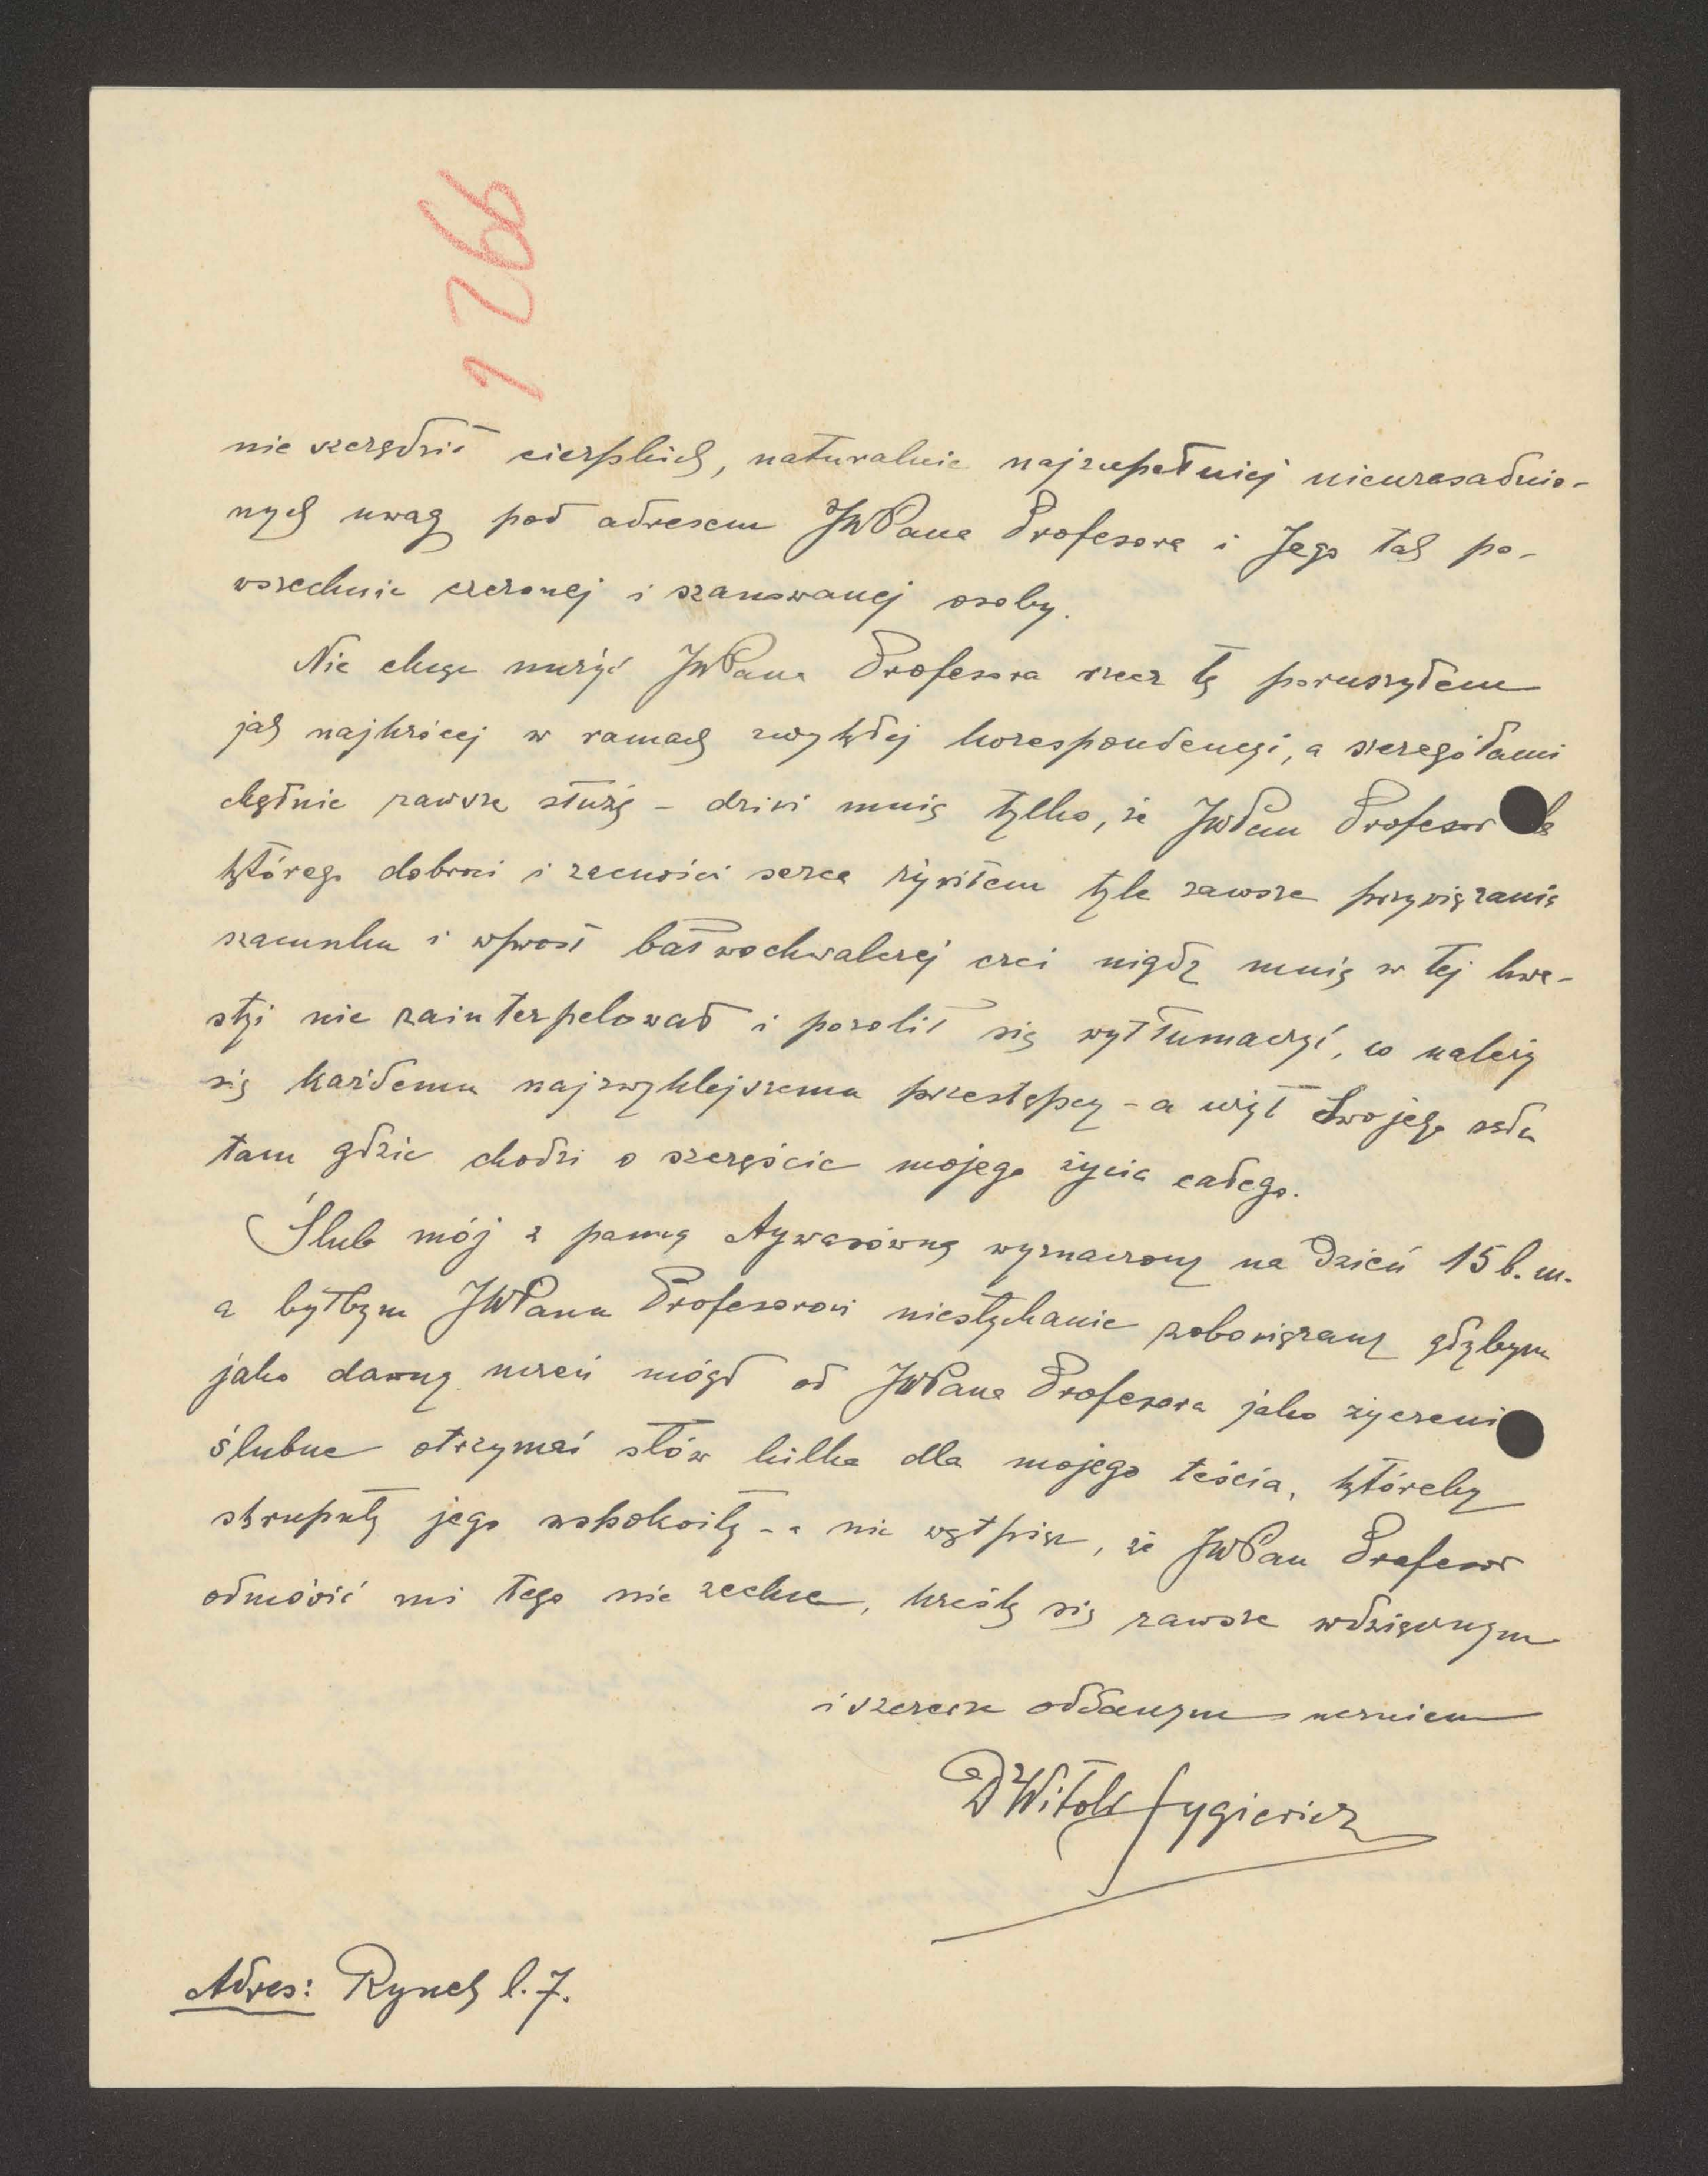 1266
nie szczędził cierpkich, naturalnie najzupełniej nieuzasadnio-
nych uwag pod adresem JWPana Profesora i Jego tak po-
wszechnie czczonej i szanowanej osoby.
Nie chcąc nużyć JWPana Profesora rzecz tę poruszyłem
jak najkrócej w ramach zwykłej korespondencyi, a szczegółami
chętnie zawsze służę – dziwi mnię tylko, że JWPan Profesor
którego dobroci i zacności serca żywiłem tyle zawsze przywiązania
szacunku i wprost bałwochwalczej czci nigdy mnię w tej kwe-
styi nie zainterpelował i pozolił się wytłumaczyć, co należy
się każdemu najzwyklejszemu przestępcy – a użył Swojego sądu
tam gdzie chodzi o szczęście mojego życia całego.
Ślub mój z panną Aywasówną wyznaczony na dzień 15 b. m.
a byłbym JWPanu Profesorowi niesłychanie zobowiązany gdybym
jako dawny uczeń mógł od JWPana Profesora jako życzeni
ślubne otrzymać słów kilka dla mojego teścia, któreby
skrupuły jego uspokoiły – a nie wątpiąc, że JWPan Profesor
odmówić mi tego nie zechce, kreślę się zawsze wdzięcznym
i szczerze oddanym uczniem
Dr Witold Zygiewicz
Adres: Rynek l. 7.